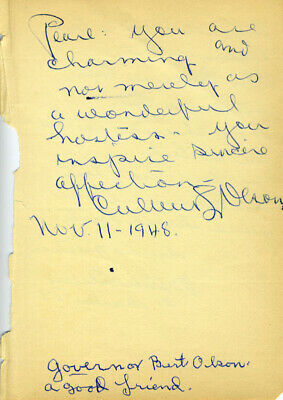 Pearl: You are
charming and
not merely as
a wonderful
hostess - you
inspire sincere
affection -
Culbert L Olson
Nov. 11-1948.
Governor Bert Olson.
a good friend.